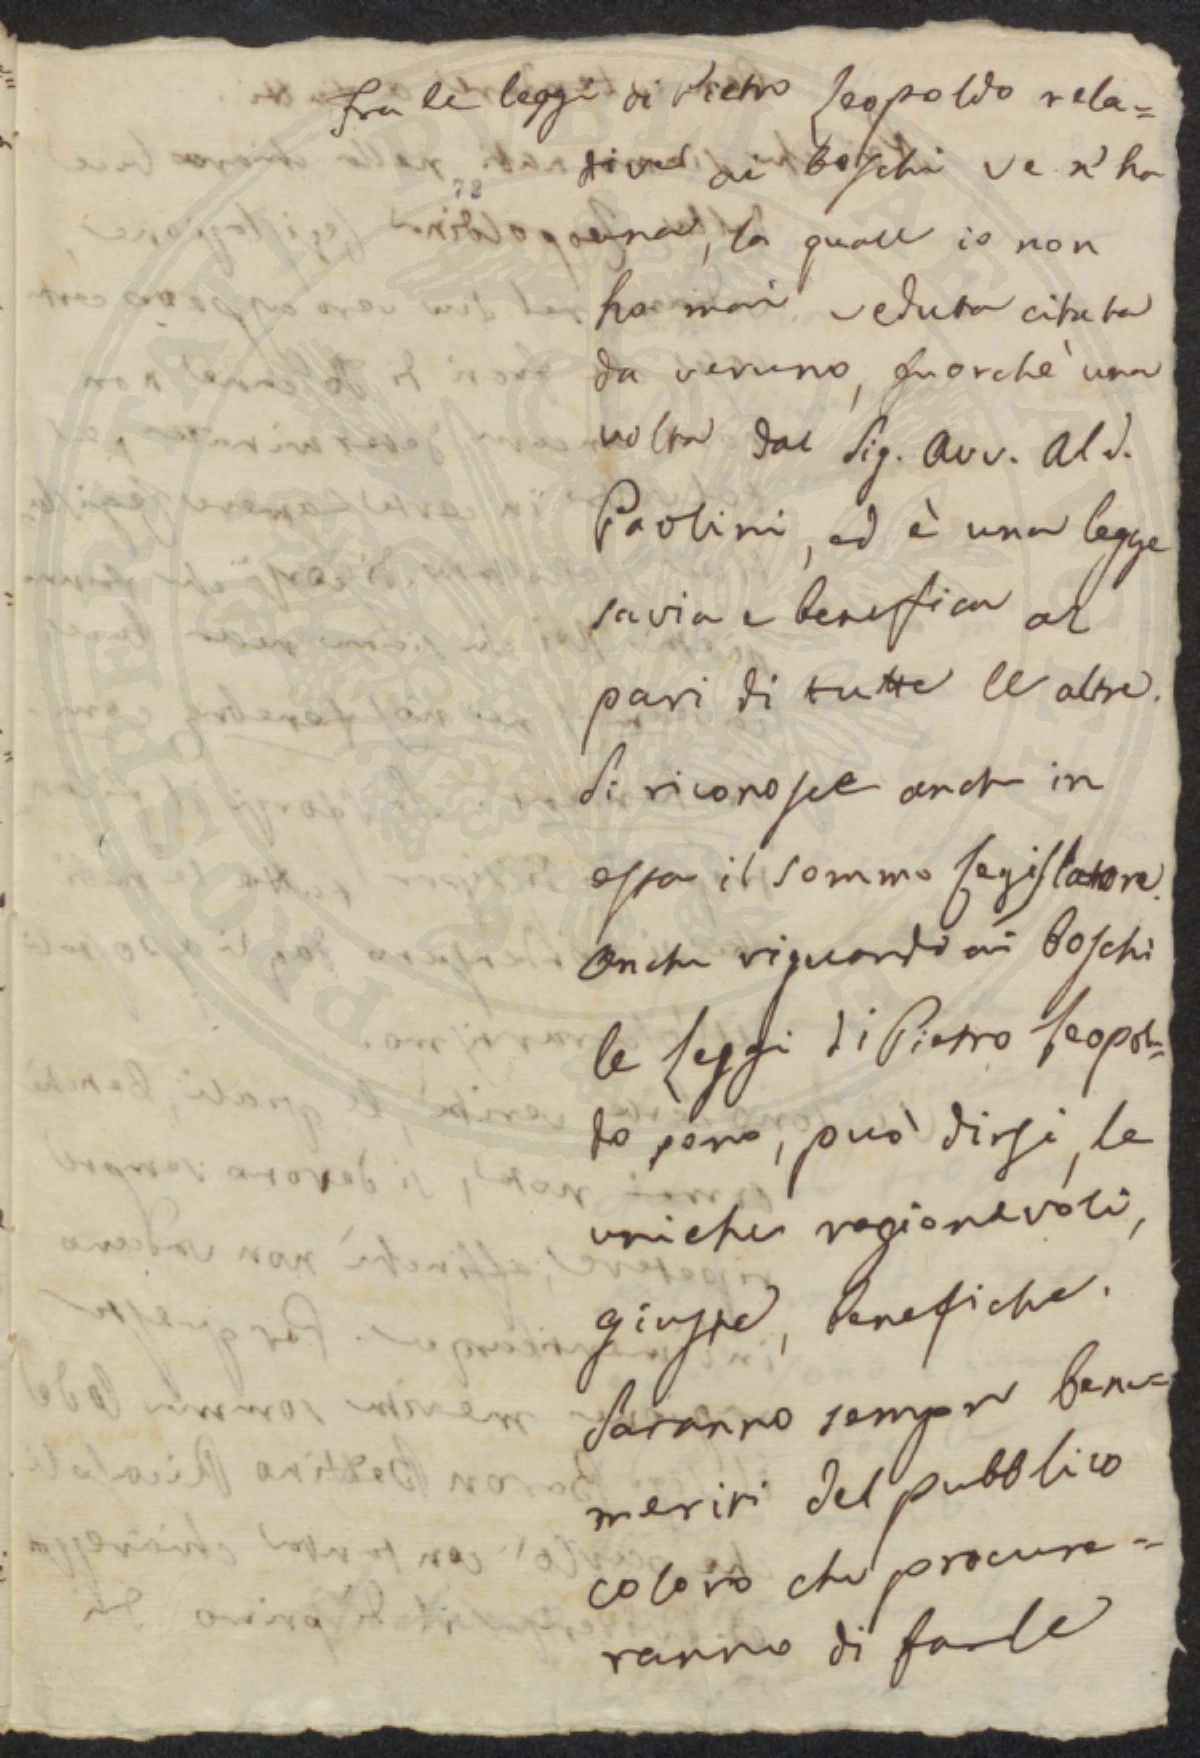 Fra le leggi di Pietro Leopoldo rela=
tive ai boschi ve n'ha
72
una, la quale io non
ho mai veduta citata
da veruno, fuorchè una
volta dal Sig. Avv. Ald.
Paolini, ed è una legge
savia e benefica al
pari di tutte le altre.
Si riconosce anche in
essa il sommo Legislatore.
Anche riguardo ai boschi
le Leggi di Pietro Leopol=
do sono, può dirsi, le
uniche ragionevoli,
giuste, benefiche.
Saranno sempre bene=
meriti del pubblico
coloro che procure=
ranno di farle